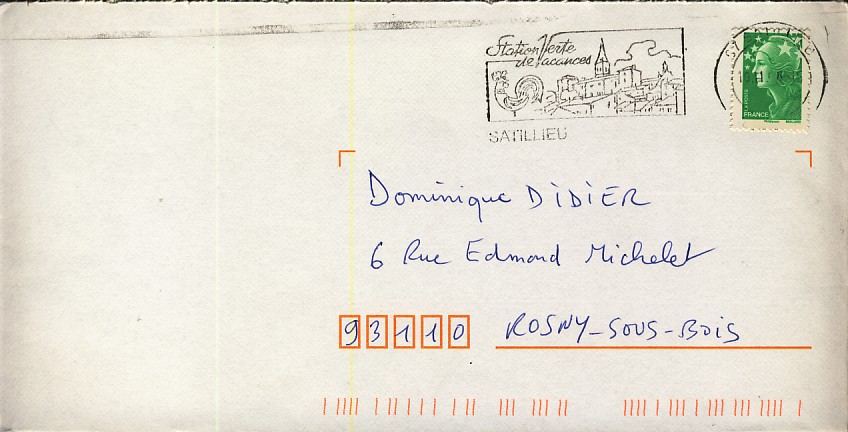 Station Verte
de Vacances
SATILLIEU
LA POSTE
FRANCE
Dominique DIDIER
6 Rue Edmond Michelet
93110 ROSNY-SOUS-BOIS